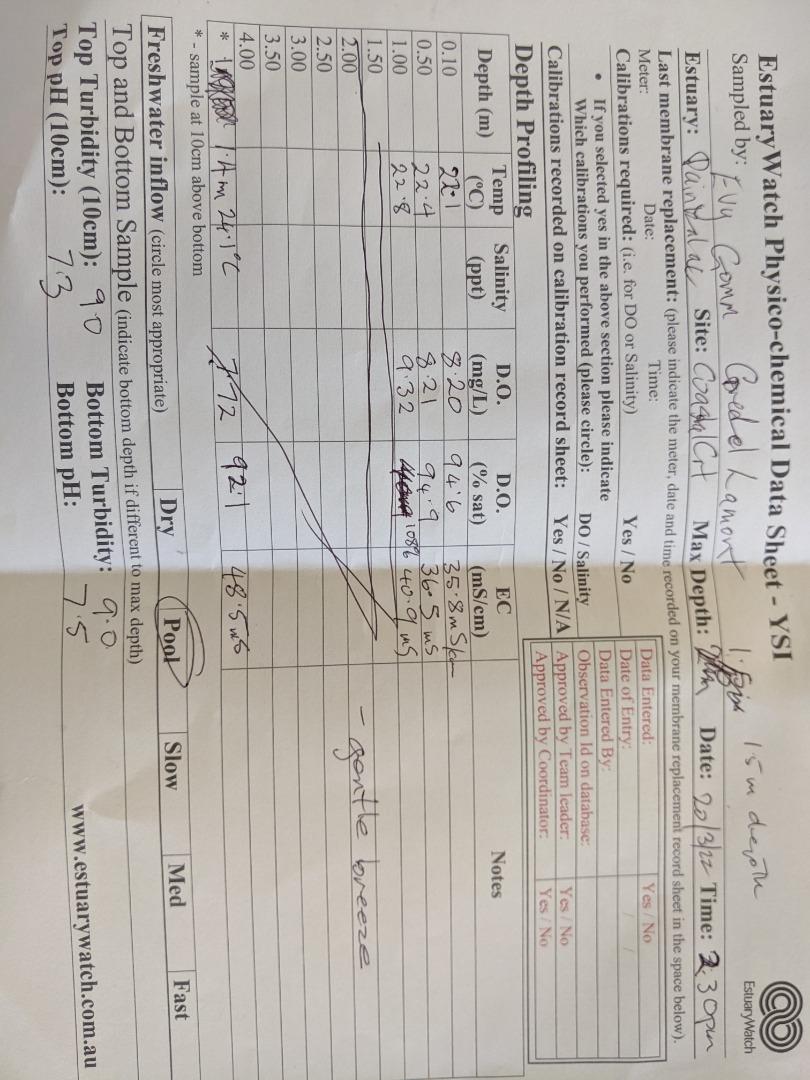 EstuaryWatch Physico-chemical Data Sheet - YSI
EstuaryWatch
Sampled by: Gomm Lamont 1.5m depth
Estuary: Painkalac Site: Max Depth: Date: 20/3/22 Time: 2.30pm
Last membrane replacement: (please indicate the meter, date and time recorded on your membrane replacement record sheet in the space below).
Meter: Date: Time:
Calibrations required: (i.e. for DO or Salinity) Yes / No
• If you selected yes in the above section please indicate
Which calibrations you performed (please circle): DO / Salinity
Calibrations recorded on calibration record sheet: Yes / No / N/A
Data Entered: Yes / No
Date of Entry: / /
Data Entered By:
Observation Id on database:
Approved by Team leader: Yes / No
Approved by Coordinator: Yes / No
Depth Profiling
Depth (m) Temp (°C) Salinity (ppt) D.O. (mg/L) D.O. (% sat) EC (mS/cm) Notes
0.10 22.1 8.20 94.6 35.8mS/cm
0.50 22.4 8.21 94.9 36.5 mS
1.00 22.8 9.32 108% 40.9 mS
1.50
2.00 - gentle breeze
2.50
3.00
3.50
4.00
* 1.4m 24.1°C 7.72 92.1 48.5mS
* - sample at 10cm above bottom
Freshwater inflow (circle most appropriate) Dry Pool Slow Med Fast
Top and Bottom Sample (indicate bottom depth if different to max depth)
Top Turbidity (10cm): 9.0 Bottom Turbidity: 9.0
Top pH (10cm): 7.3 Bottom pH: 7.5
www.estuarywatch.com.au